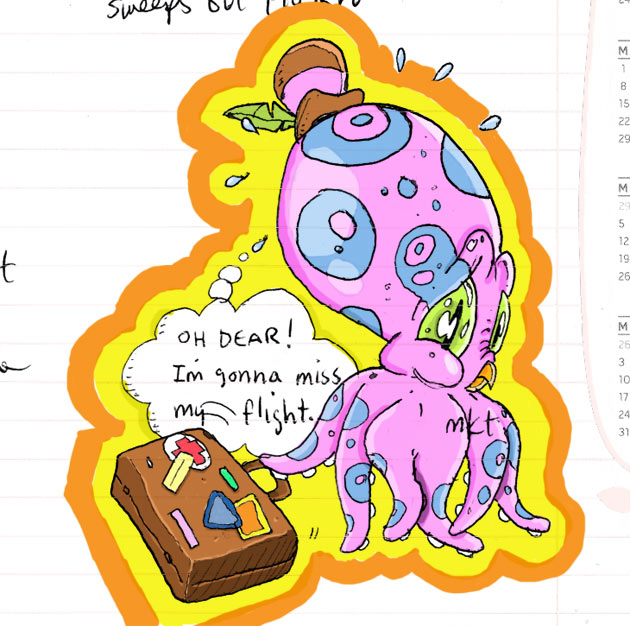 M
1
8
15
22
29
M
29
5
12
19
26
M
26
3
10
17
24
31
t
OH DEAR!
I'm gonna miss
my flight.
mkt.